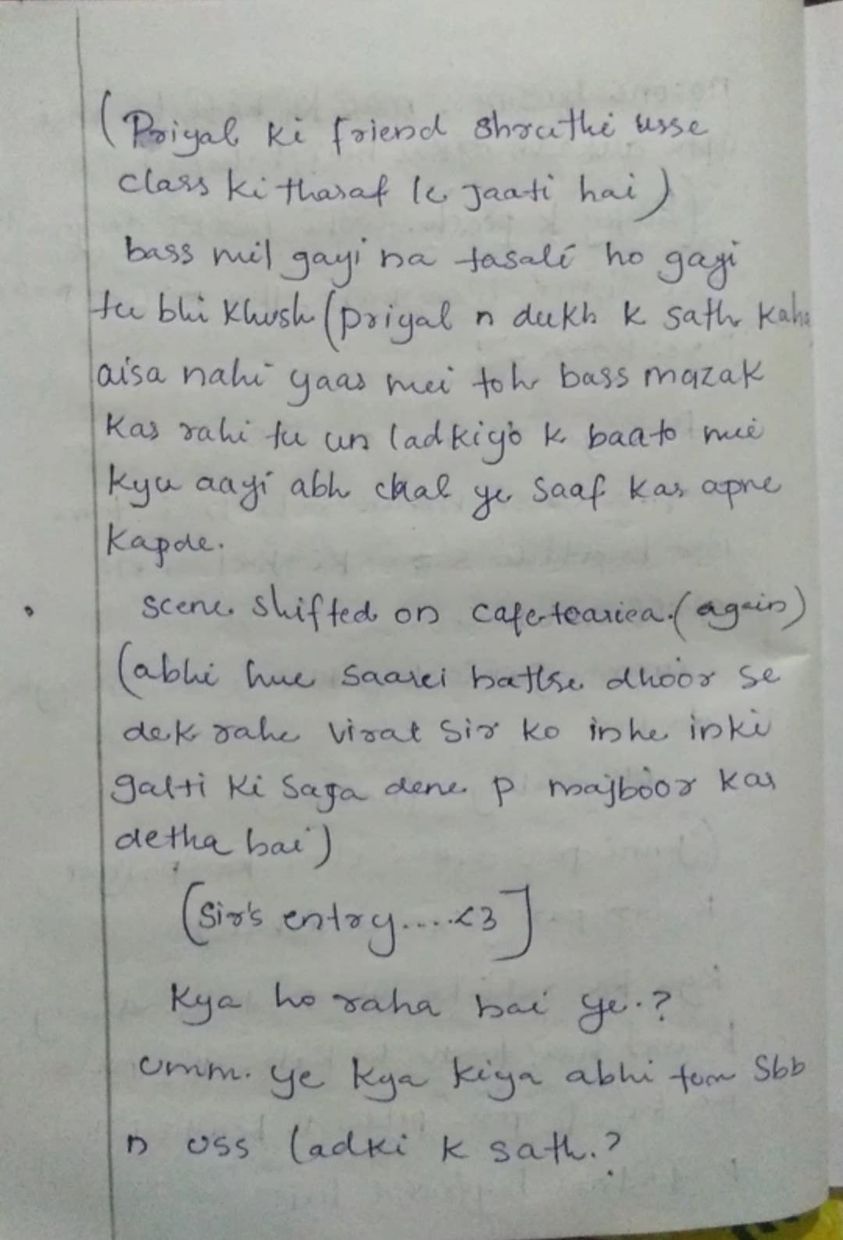 (Priyal ki friend Shruthi usse
class ki tharaf le jaati hai)
bass mil gayi na tasali ho gayi
tu bhi khush (priyal n dukh k sath kaha
aisa nahi yaar mei toh bass mazak
kar rahi tu un ladkiyo k baato mei
kyu aayi abh chal ye saaf kar apne
kapde.
scene shifted on cafeteariea. (again)
(abhi hue saarei batlse dhoor se
dek rahe virat sir ko inhe inki
galti ki saja dene p majboor kar
detha hai)
(Sir's entry....<3]
Kya ho raha hai ye.?
umm. ye kya kiya abhi tum sbb
n uss ladki k sath.?